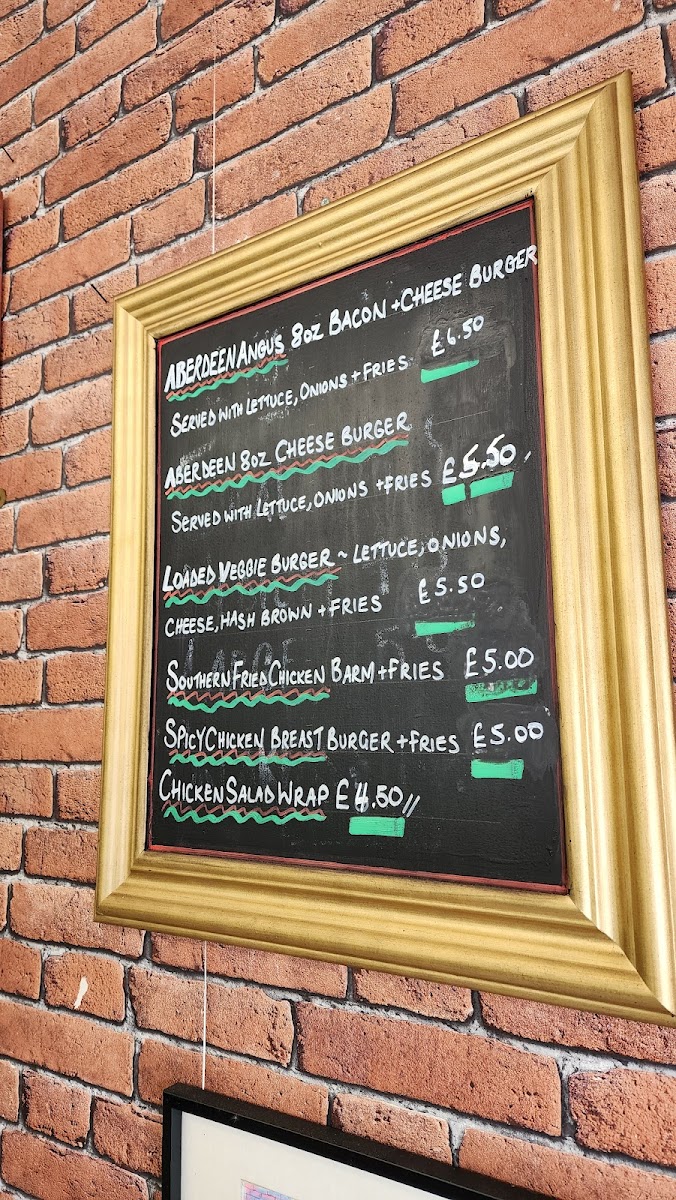 ABERDEEN ANGUS 8oz BACON + CHEESE BURGER
SERVED WITH LETTUCE, ONIONS + FRIES £6.50
ABERDEEN 8oz CHEESE BURGER
SERVED WITH LETTUCE, ONIONS + FRIES £5.50
LOADED VEGGIE BURGER ~ LETTUCE, ONIONS,
CHEESE, HASH BROWN + FRIES £5.50
SOUTHERN FRIED CHICKEN BARM + FRIES £5.00
SPICY CHICKEN BREAST BURGER + FRIES £5.00
CHICKEN SALAD WRAP £4.50 //